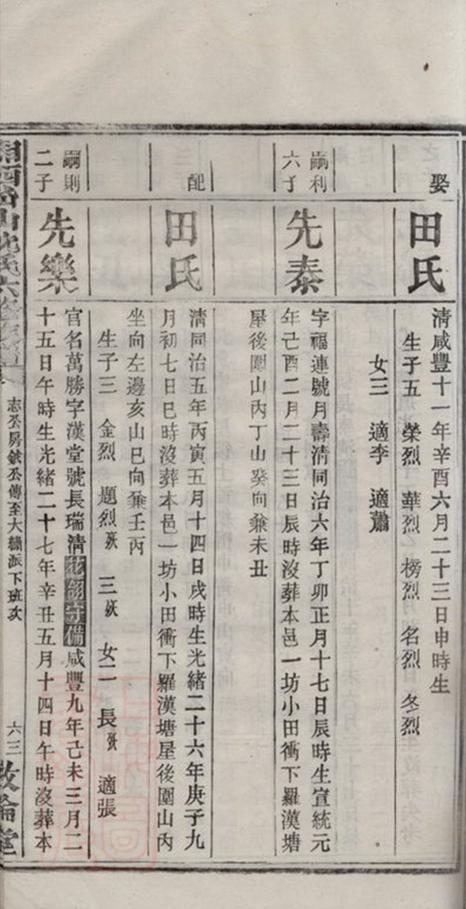 娶
田氏
清咸豐十一年辛酉六月二十三日申時生
生子五 榮烈 華烈 榜烈 名烈 冬烈
女三 適李 適蕭
嗣利六子
先泰
字福連號月壽清同治六年丁卯正月十七日辰時生宣統元
年己酉二月二十三日辰時沒葬本邑一坊小田衝下羅漢塘
屋後圍山內丁山癸向兼未丑
配
田氏
清同治五年丙寅五月十四日戌時生光緒二十六年庚子九
月初七日巳時沒葬本邑一坊小田衝下羅漢塘屋後圍山內
坐向左邊亥山巳向兼壬丙
生子三 金烈 題烈殀 三殀 女二 長殀 適張
嗣則二子
先樂
官名萬勝字漢堂號長瑞清花翎守備咸豐九年己未三月二
十五日午時生光緒二十七年辛丑五月十四日午時沒葬本
志丕房欽丕傳至大 派下班次
六三
敦倫堂